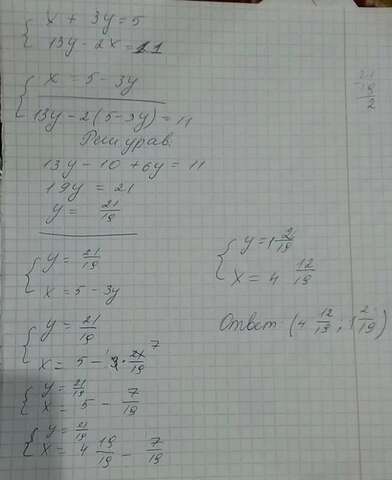 { x + 3y = 5
13y - 2x = 11
{ x = 5 - 3y
13y - 2(5 - 3y) = 11
Реш урав:
13y - 10 + 6y = 11
19y = 21
y = 21/19
{ y = 21/19
x = 5 - 3y
{ y = 21/19
x = 5 - 3 · 21/19 7
{ y = 21/19
x = 5 - 7/19
{ y = 21/19
x = 4 19/19 - 7/19
21
19
2
{ y = 1 2/19
x = 4 12/19
Ответ (4 12/19; 1 2/19)